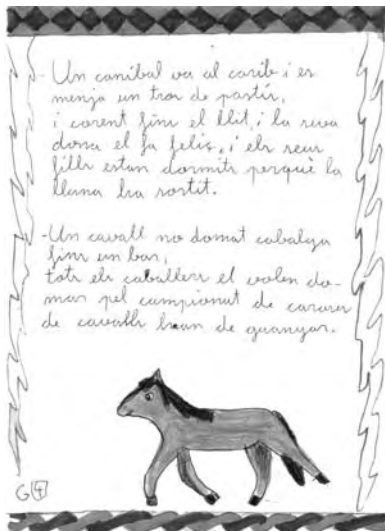 - Un caníbal va al carib i es
menja un tros de pastís,
i corent fins el llit, i la seva
dona el fa feliç, i els seus
fills estan dormits perquè la
lluna ha sortit.
- Un cavall no domat cabalga
fins un bar,
tots els caballers el volen do-
mar pel campionat de carares
de cavalls han de guanyar.
G 4